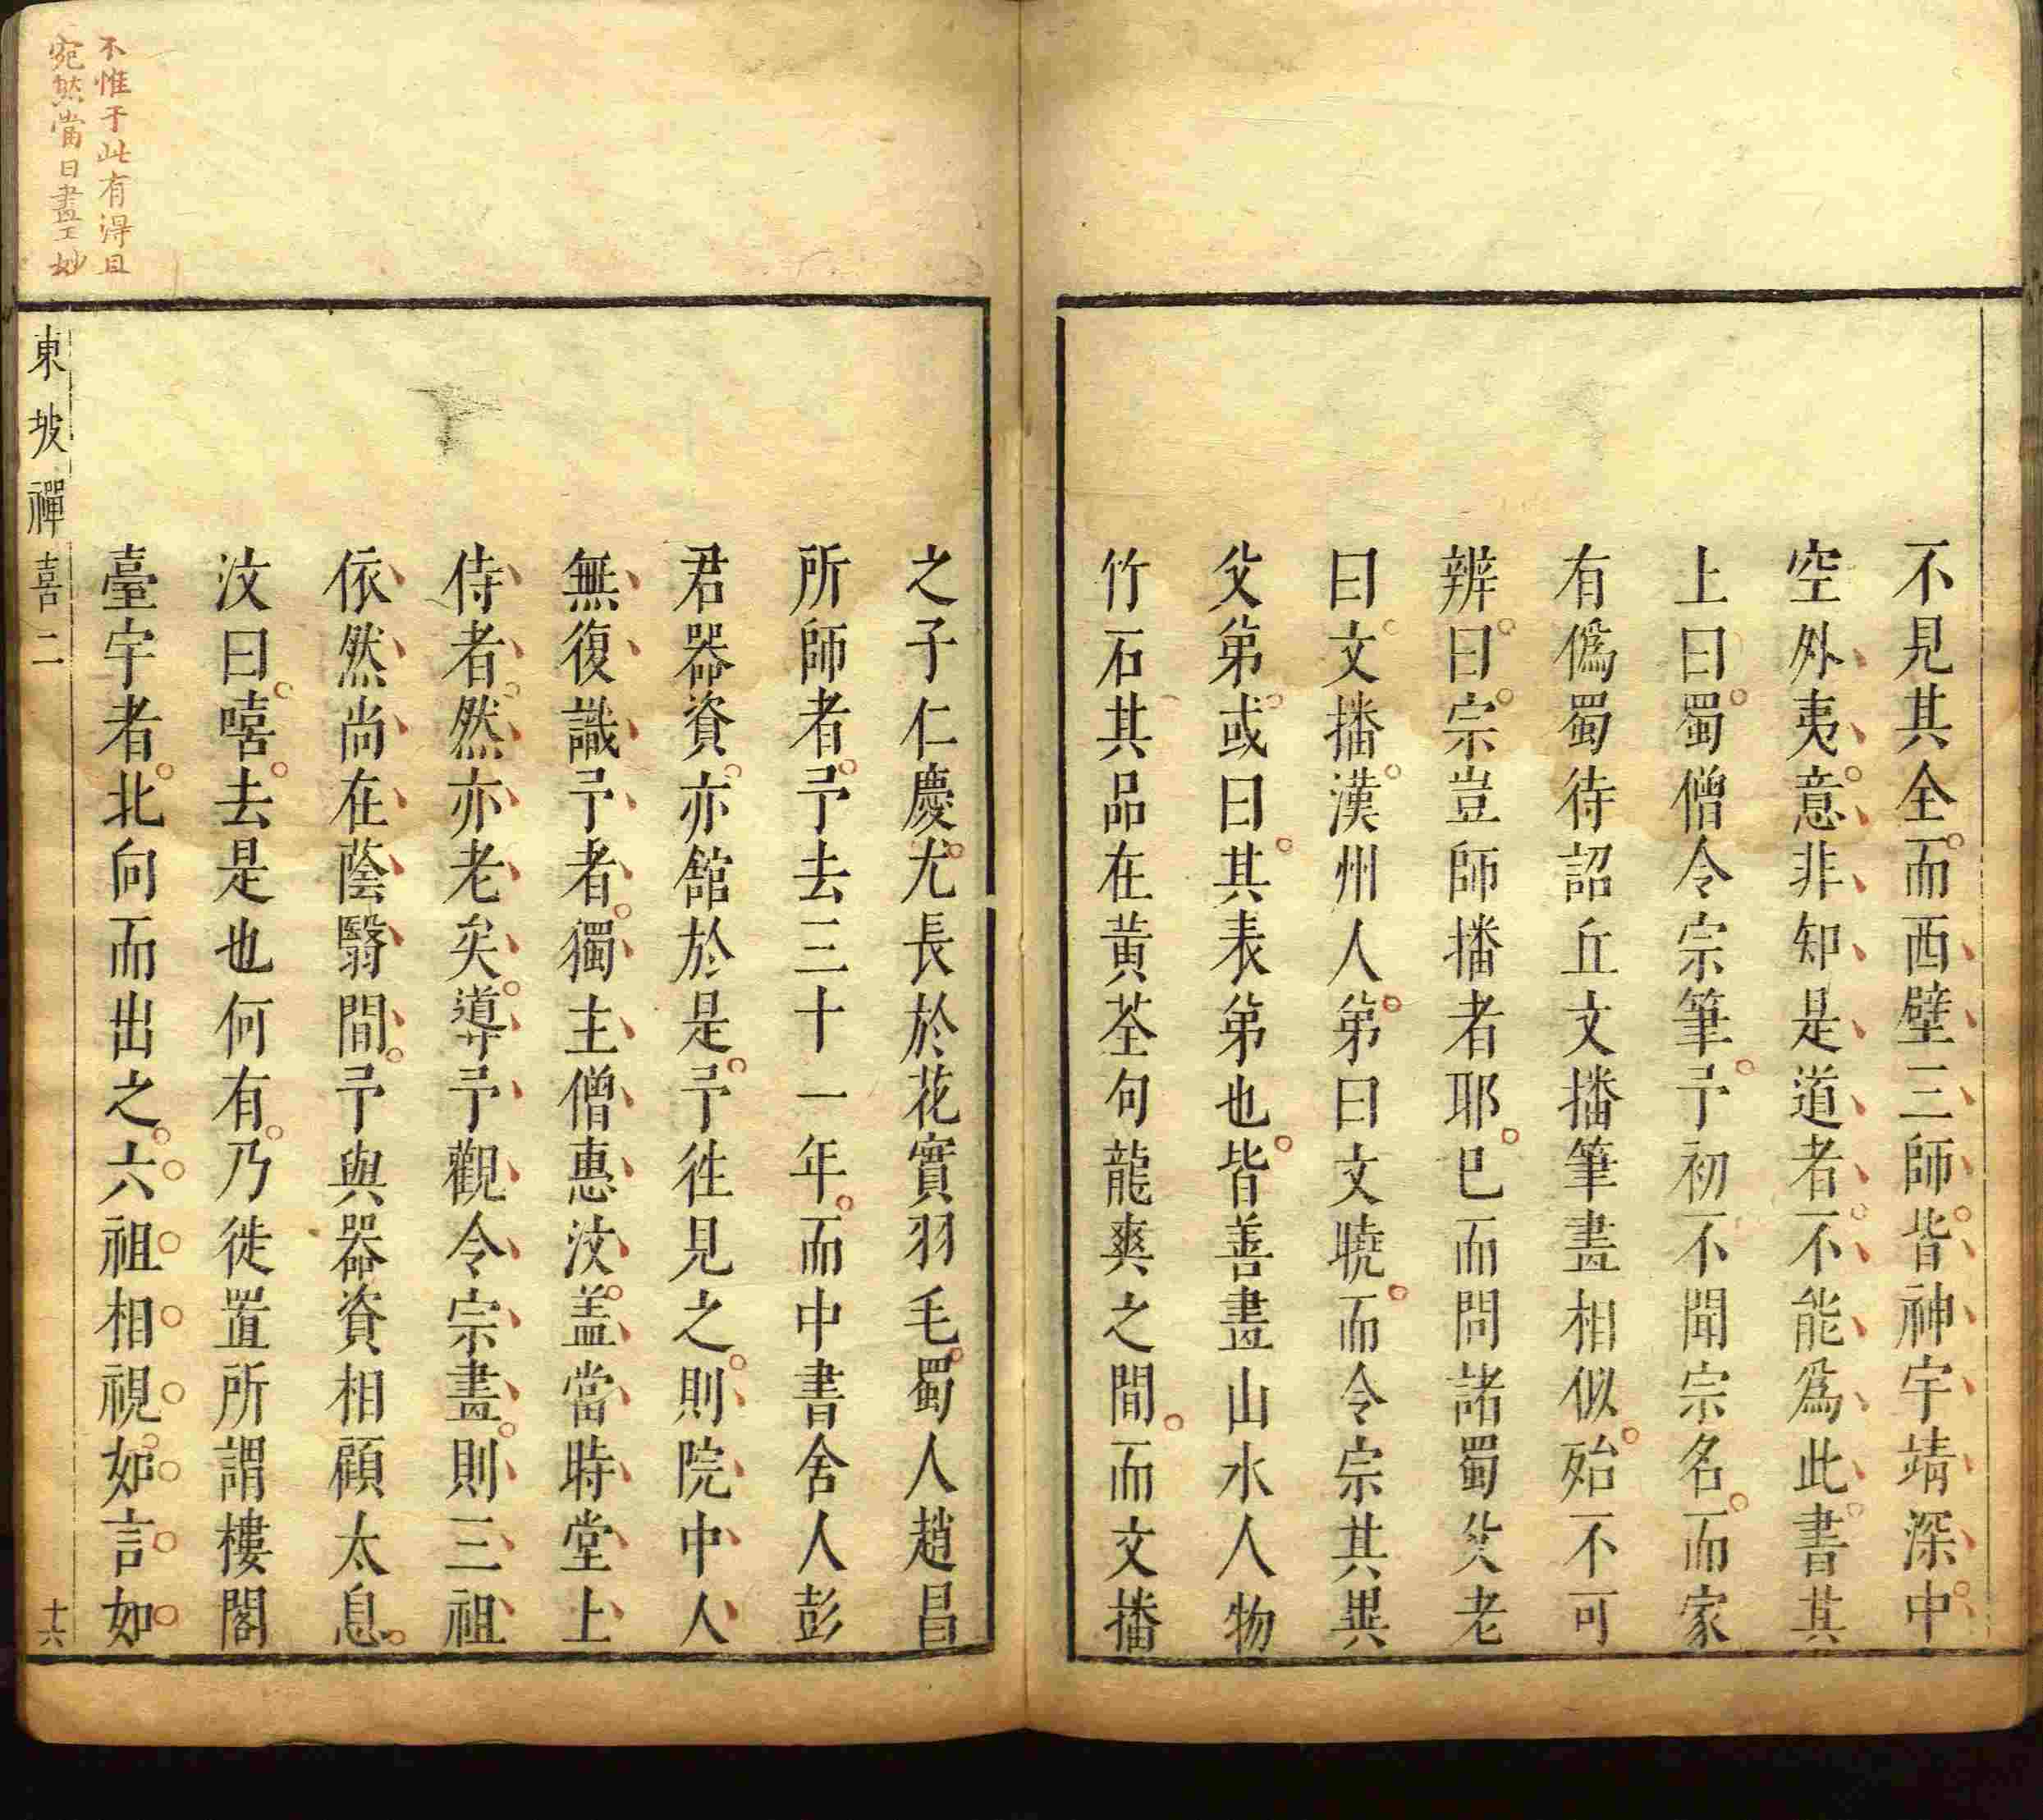 不見其全而西壁三師皆神宇靖深中
空外夷意非知是道者不能爲此書其
上曰蜀僧令宗筆予初不聞宗名而家
有僞蜀待詔丘文播筆畫相似殆不可
辨曰宗豈師播者耶已而問諸蜀父老
曰文播漢州人弟曰文曉而令宗其異
父弟或曰其表弟也皆善畫山水人物
竹石其品在黃荃句龍爽之間而文播
之子仁慶尤長於花實羽毛蜀人趙昌
所師者予去三十一年而中書舍人彭
君器資亦舘於是予徃見之則院中人
無復識予者獨主僧惠汶葢當時堂上
侍者然亦老矣導予觀令宗畫則三祖
依然尚在蔭翳間予與器資相顧太息
汶曰嘻去是也何有乃徙置所謂樓閣
臺宇者北向而出之六祖相視如言如
東坡禪喜二
十六
不惟于此有得且
宛然當日畫工妙